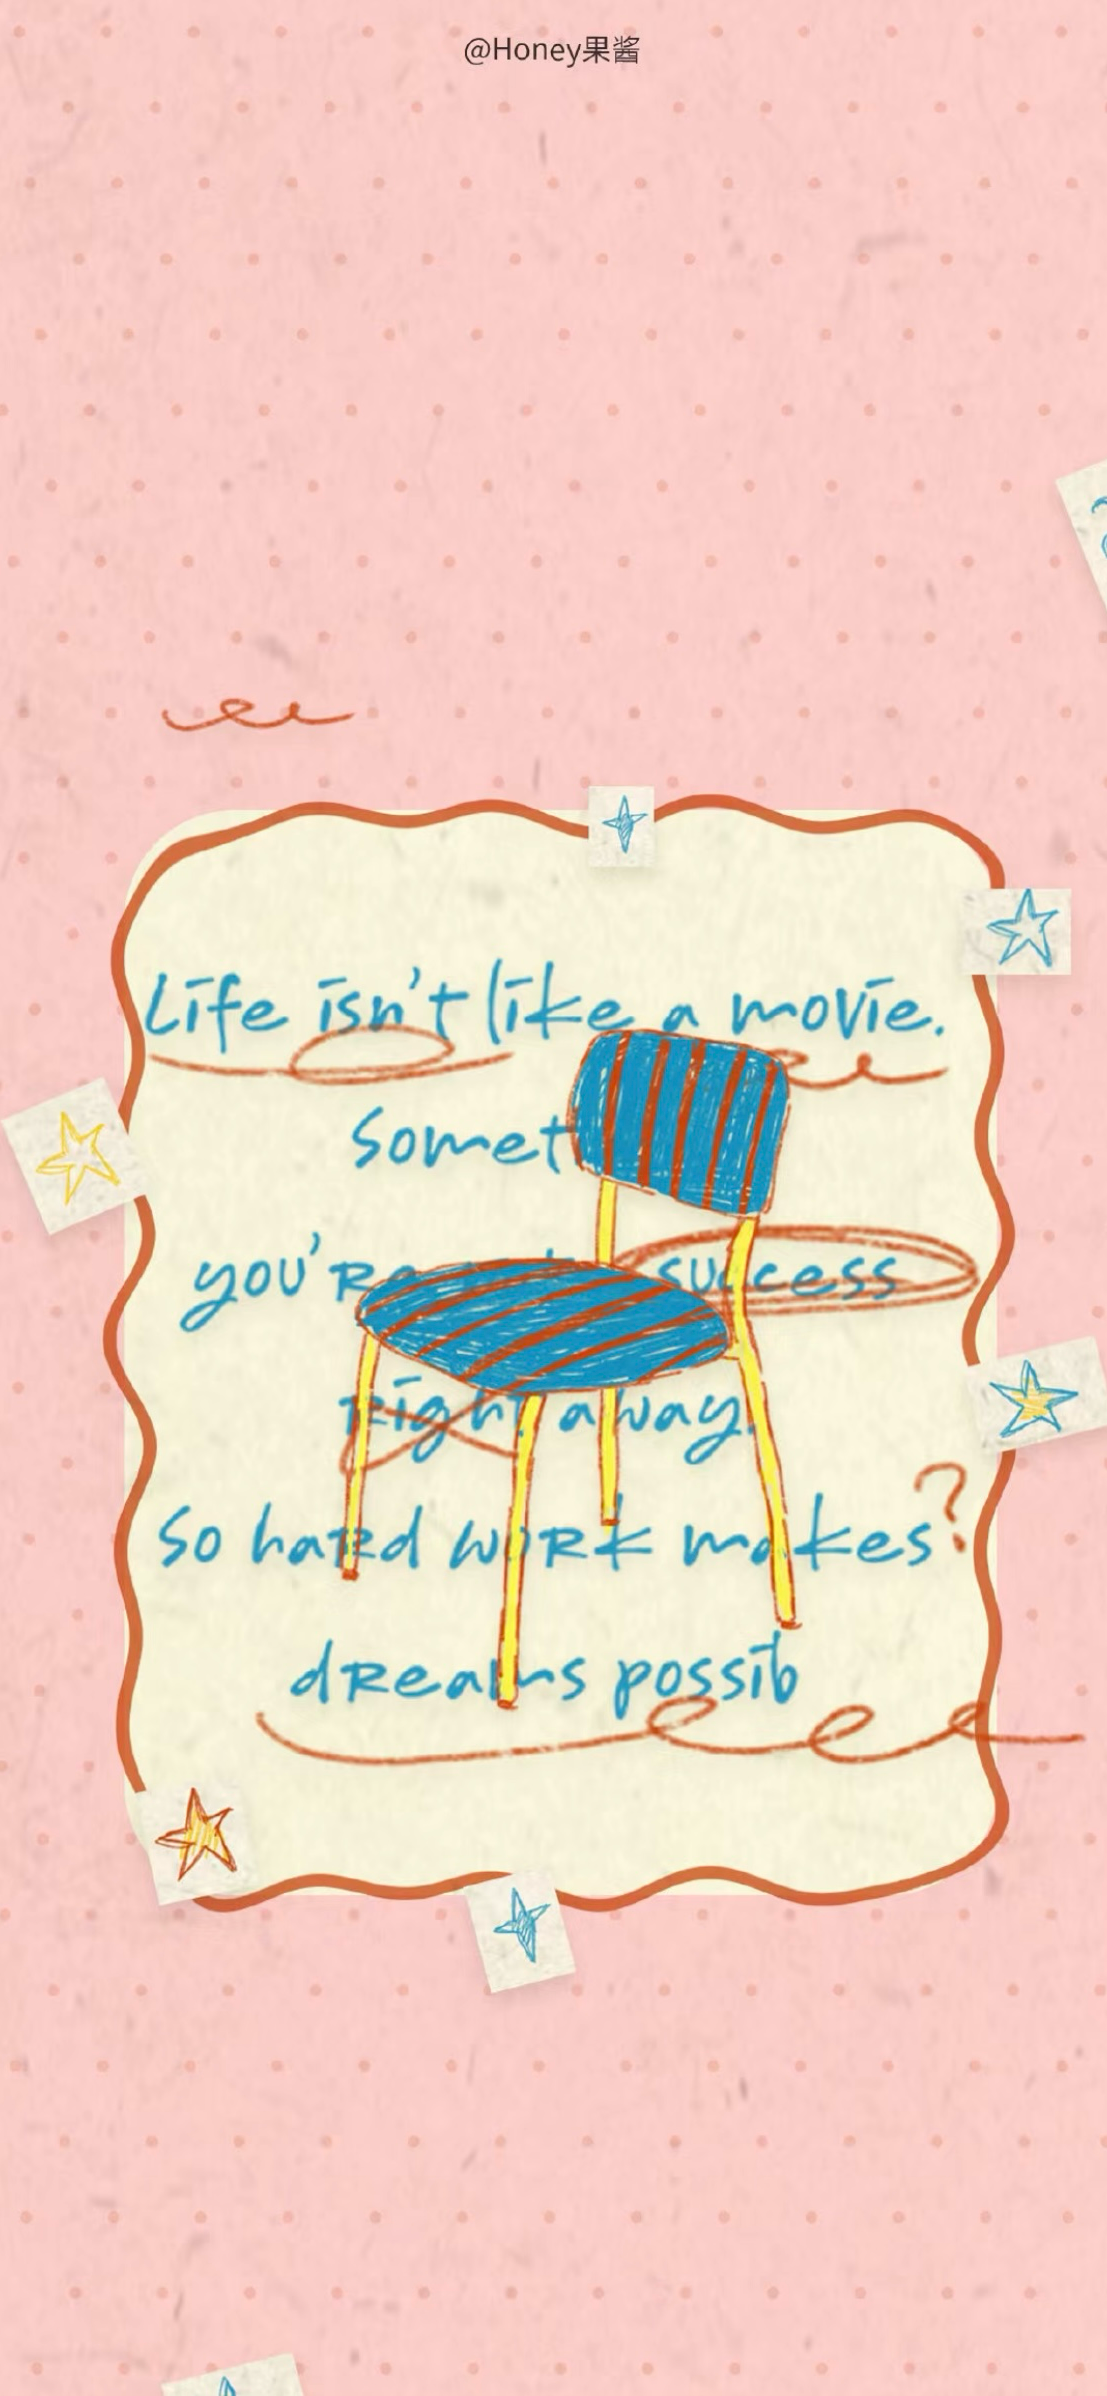 @Honey果酱
Life isn't like a movie.
Somet
you're success
Right away.
So hard work makes?
dreams possib